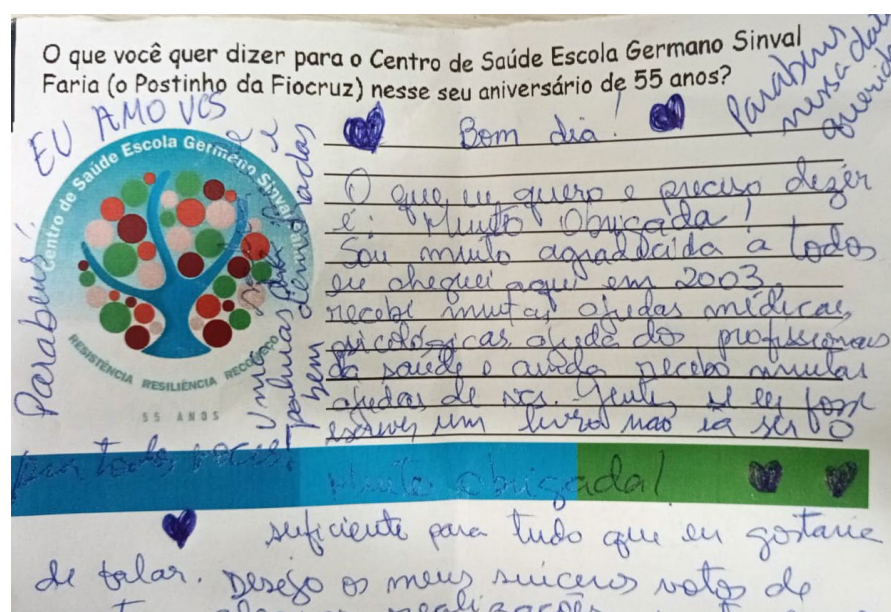 O que você quer dizer para o Centro de Saúde Escola Germano Sinval
Faria (o Postinho da Fiocruz) nesse seu aniversário de 55 anos?
Parabéns
nessa data
querida
EU AMO VCS
Bom dia!
Centro de Saúde Escola Germano Sinval
RESISTÊNCIA RESILIÊNCIA RECOMEÇO
55 ANOS
Parabéns!
bem demoradas
O que eu quero e preciso dizer
é: Muito Obrigada!
Sou muito agradecida a todos
eu cheguei aqui em 2003,
recebi muitas ajudas médicas,
psicológicas, ajuda dos profissionais
da saúde e ainda recebo muitas
ajudas de vcs. Gente, se eu fosse
escrever um livro não ia ser o
pra todos vocês.
Muito obrigada!
suficiente para tudo que eu gostaria
de falar. Desejo os meus sinceros votos de
realizações